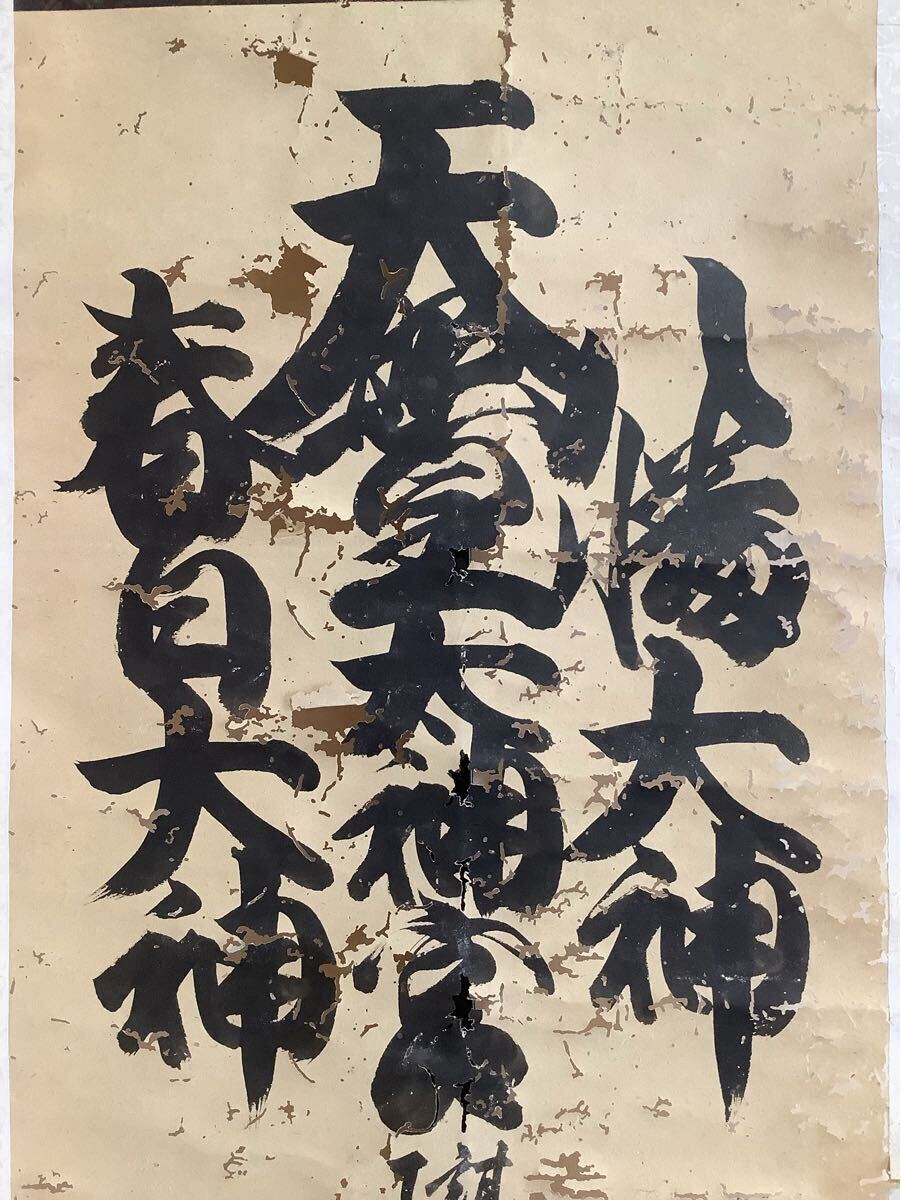 八幡大神
天照皇太神宮
春日大神